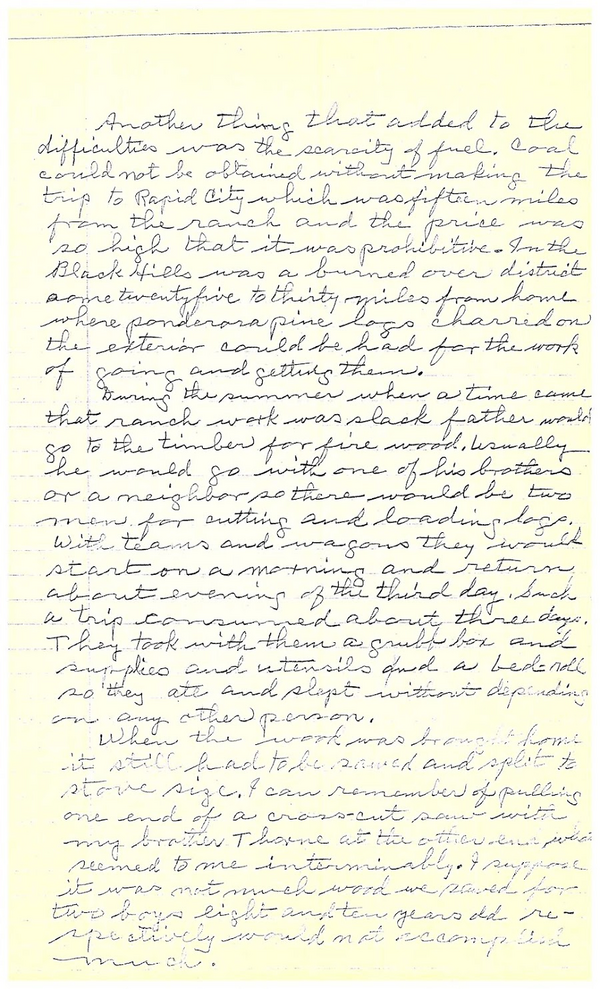 Another thing that added to the
difficulties was the scarcity of fuel. Coal
could not be obtained without making the
trip to Rapid City which was fifteen miles
from the ranch and the price was
so high that it was prohibitive. In the
Black Hills was a burned over district
some twentyfive to thirty miles from home
where ponderosa pine logs charred on
the exterior could be had for the work
of going and getting them.
During the summer when a time came
that ranch work was slack father would
go to the timber for fire wood. Usually
he would go with one of his brothers
or a neighbor so there would be two
men for cutting and loading logs.
With teams and wagons they would
start on a morning and return
about evening of the third day. Such
a trip consumed about three days.
They took with them a grubb box and
supplies and utensils and a bed roll
so they ate and slept without depending
on any other person.
When the wook was brought home
it still had to be sawed and split to
stove size. I can remember of pulling
one end of a cross-cut saw with
my brother Thorne at the other end
seemed to me interminably. I suppose
it was not much wood we sawed for
two boys eight and ten years old re-
spectively would not accomplish
much.